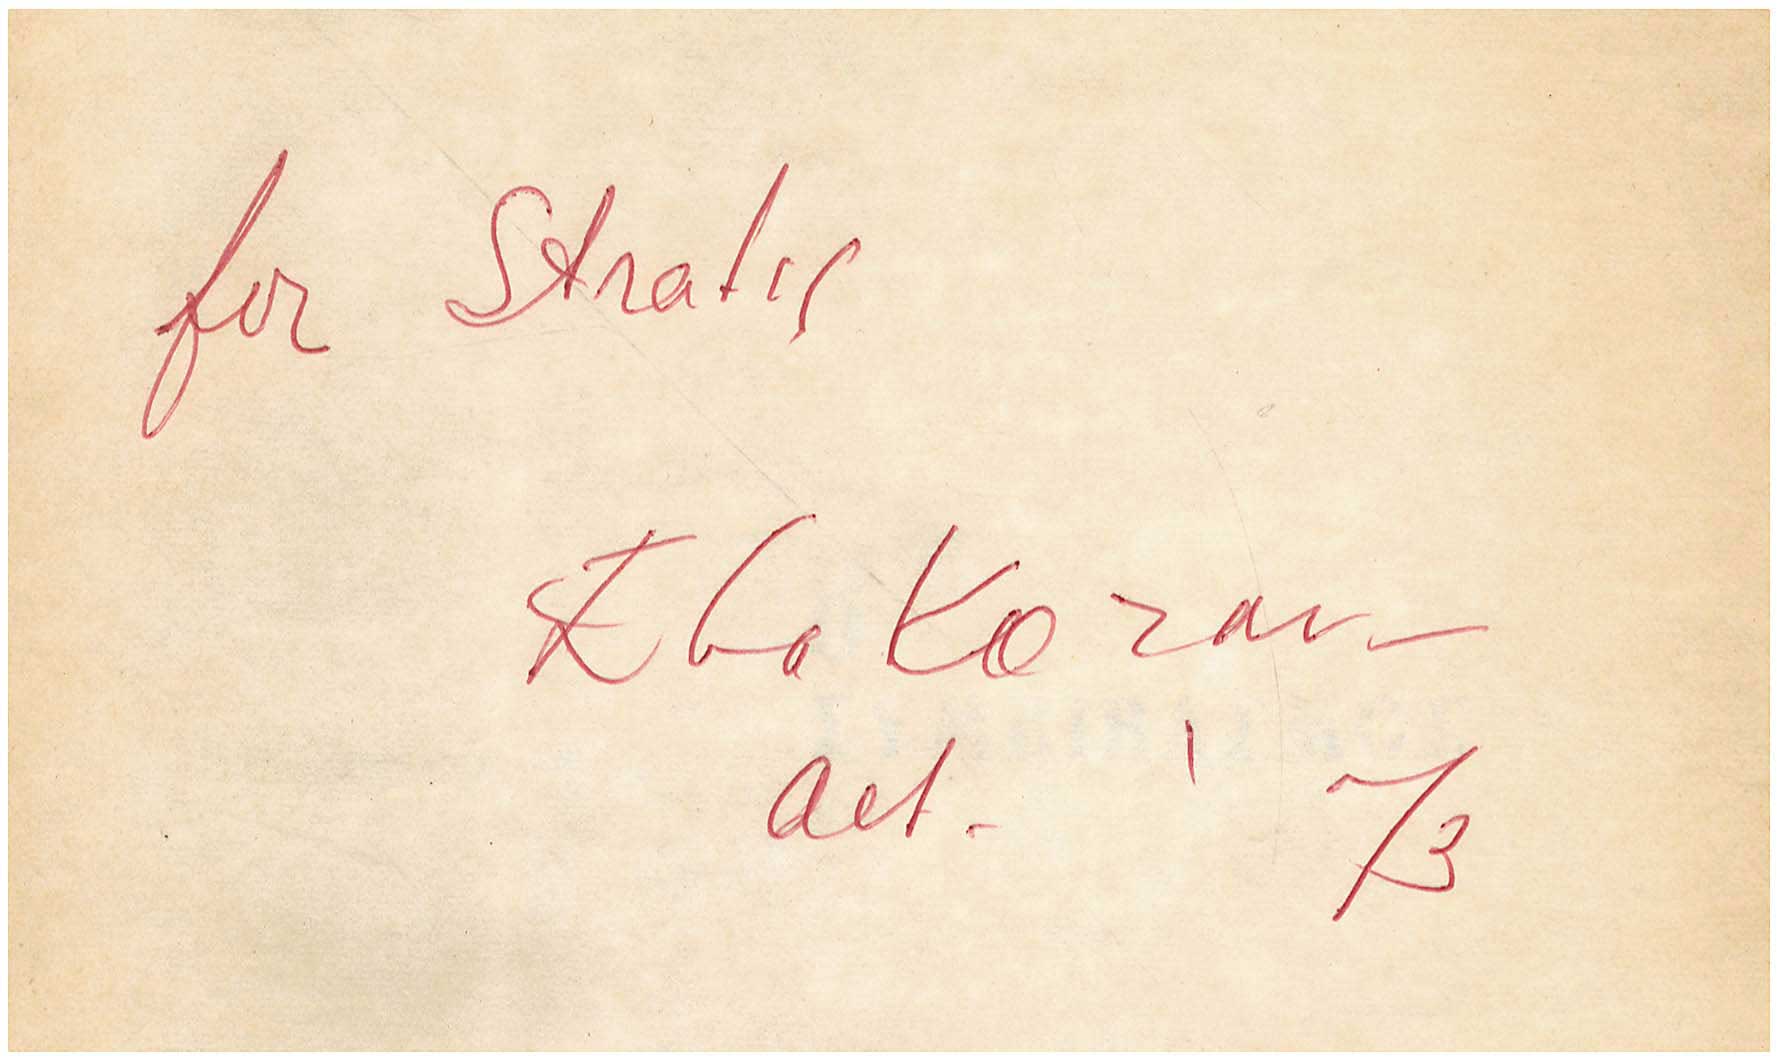 for Stratis
Elia Kazan
Oct. '73